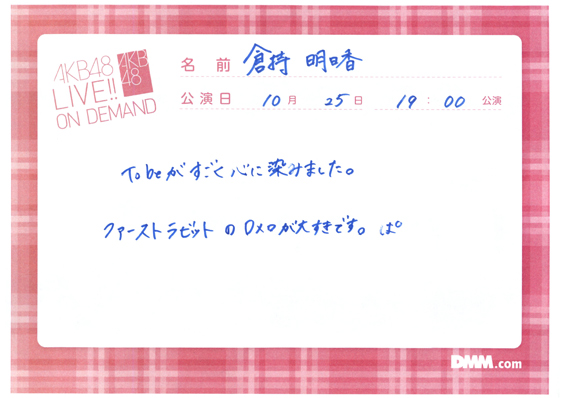 AKB48
LIVE!!
ON DEMAND
AKB
48
名前 倉持 明日香
公演日 10月 25日 19:00 公演
To beがすごく心に染みました。
ファーストラビットのDメロが大すきです。ぱ。
DMM.com